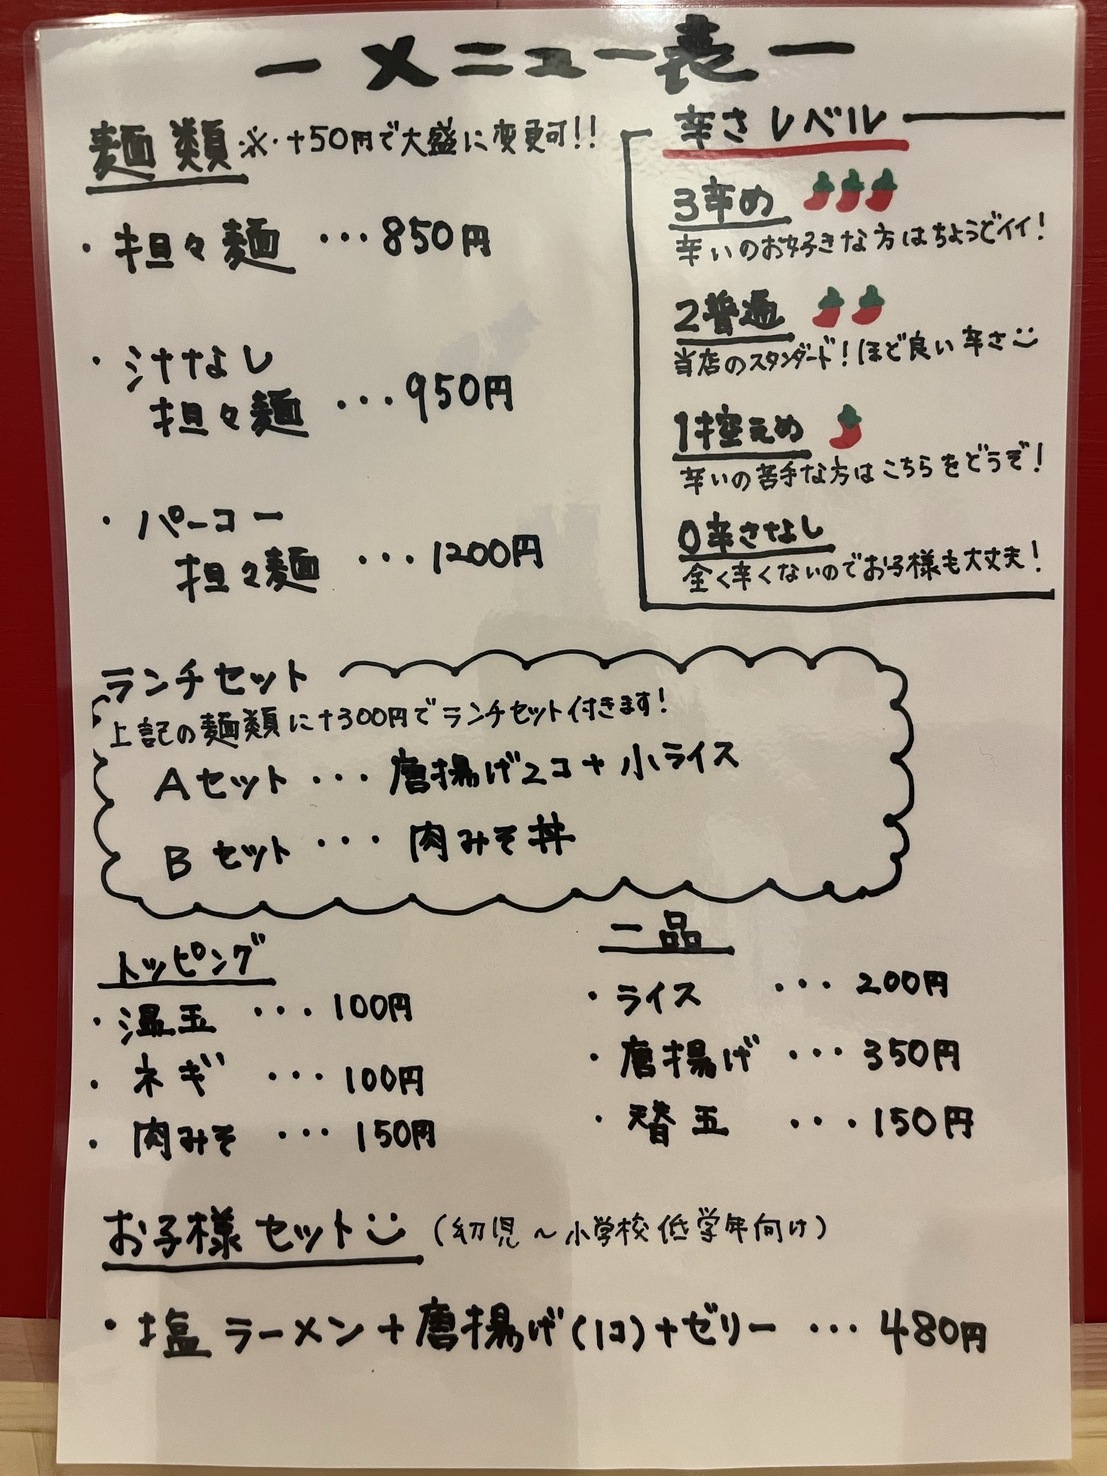 ーメニュー表ー
麺類 ※・+50円で大盛に変更可!!
・担々麺 ・・・850円
・汁なし
担々麺 ・・・950円
・パーコー
担々麺 ・・・1200円
辛さレベル
3辛め
辛いのお好きな方はちょうどイイ!
2普通
当店のスタンダード!ほど良い辛さ
1控えめ
辛いの苦手な方はこちらをどうぞ!
0辛さなし
全く辛くないのでお子様も大丈夫!
ランチセット
上記の麺類に+300円でランチセット付きます!
Aセット・・・唐揚げ2コ+小ライス
Bセット・・・肉みそ丼
トッピング
・温玉 ・・・100円
・ネギ ・・・100円
・肉みそ ・・・150円
一品
・ライス ・・・200円
・唐揚げ ・・・350円
・替玉 ・・・150円
お子様セット (幼児~小学校低学年向け)
・塩ラーメン+唐揚げ(1コ)+ゼリー ・・・480円